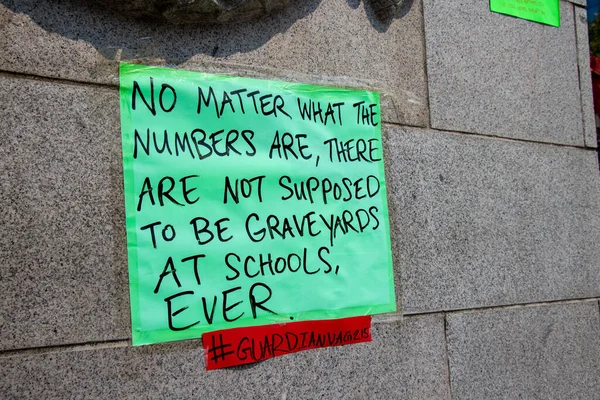 NO MATTER WHAT THE
NUMBERS ARE, THERE
ARE NOT SUPPOSED
TO BE GRAVEYARDS
AT SCHOOLS,
EVER.
#GUARDIANVAG215